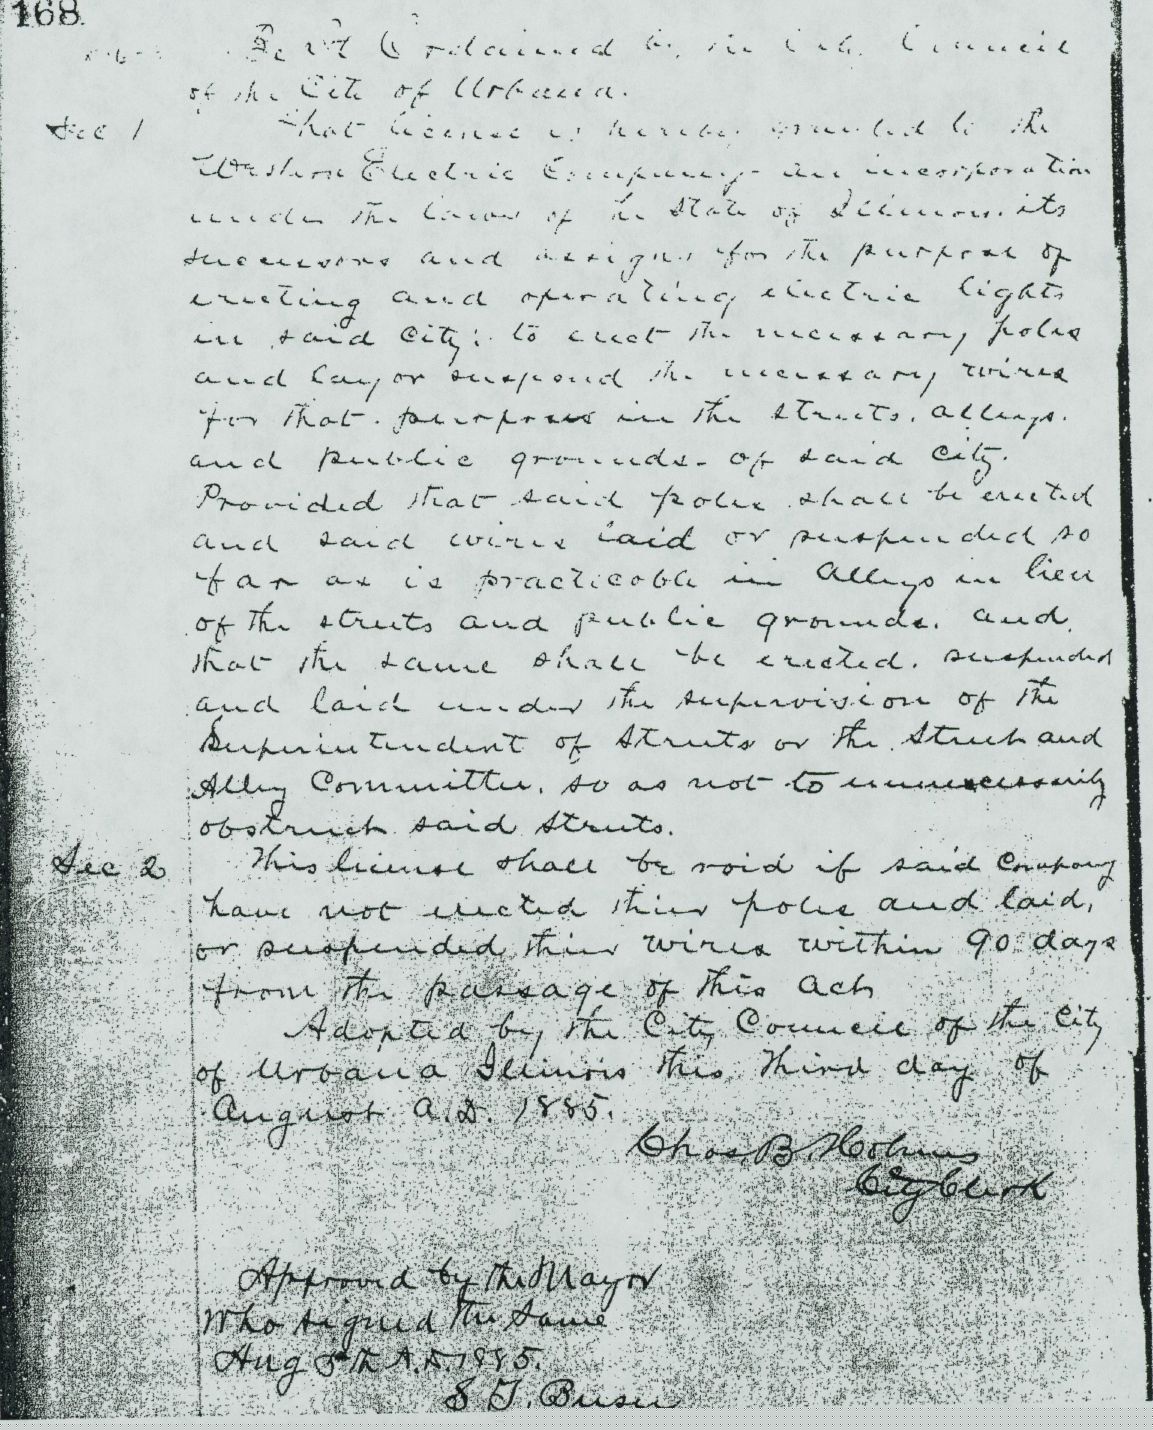 168
Be it Ordained by the City Council
of the City of Urbana.
Sec 1 That license is hereby granted to the
Western Electric Company an incorporation
under the laws of the State of Illinois. its
successors and assigns for the purpose of
erecting and operating electric lights
in said City; to erect the necessary poles
and lay or suspend the necessary wires
for that purpose in the streets, alleys,
and public grounds of said City.
Provided that said poles shall be erected
and said wires laid or suspended so
far as is practicable in Alleys in lieu
of the streets and public grounds. and
that the same shall be erected, suspended
and laid under the supervision of the
Superintendent of Streets or the Street and
Alley Committee, so as not to unnecessarily
obstruct said streets.
Sec 2 This license shall be void if said Company
have not erected thier poles and laid,
or suspended thier wires within 90 days
from the passage of this Act
Adopted by the City Council of the City
of Urbana Illinois this Third day of
August A.D. 1885.
Chas. B. Holmes
City Clerk
Approved by the Mayor
Who signed the Same
Aug 5th A.D. 1885.
S. T. Busey